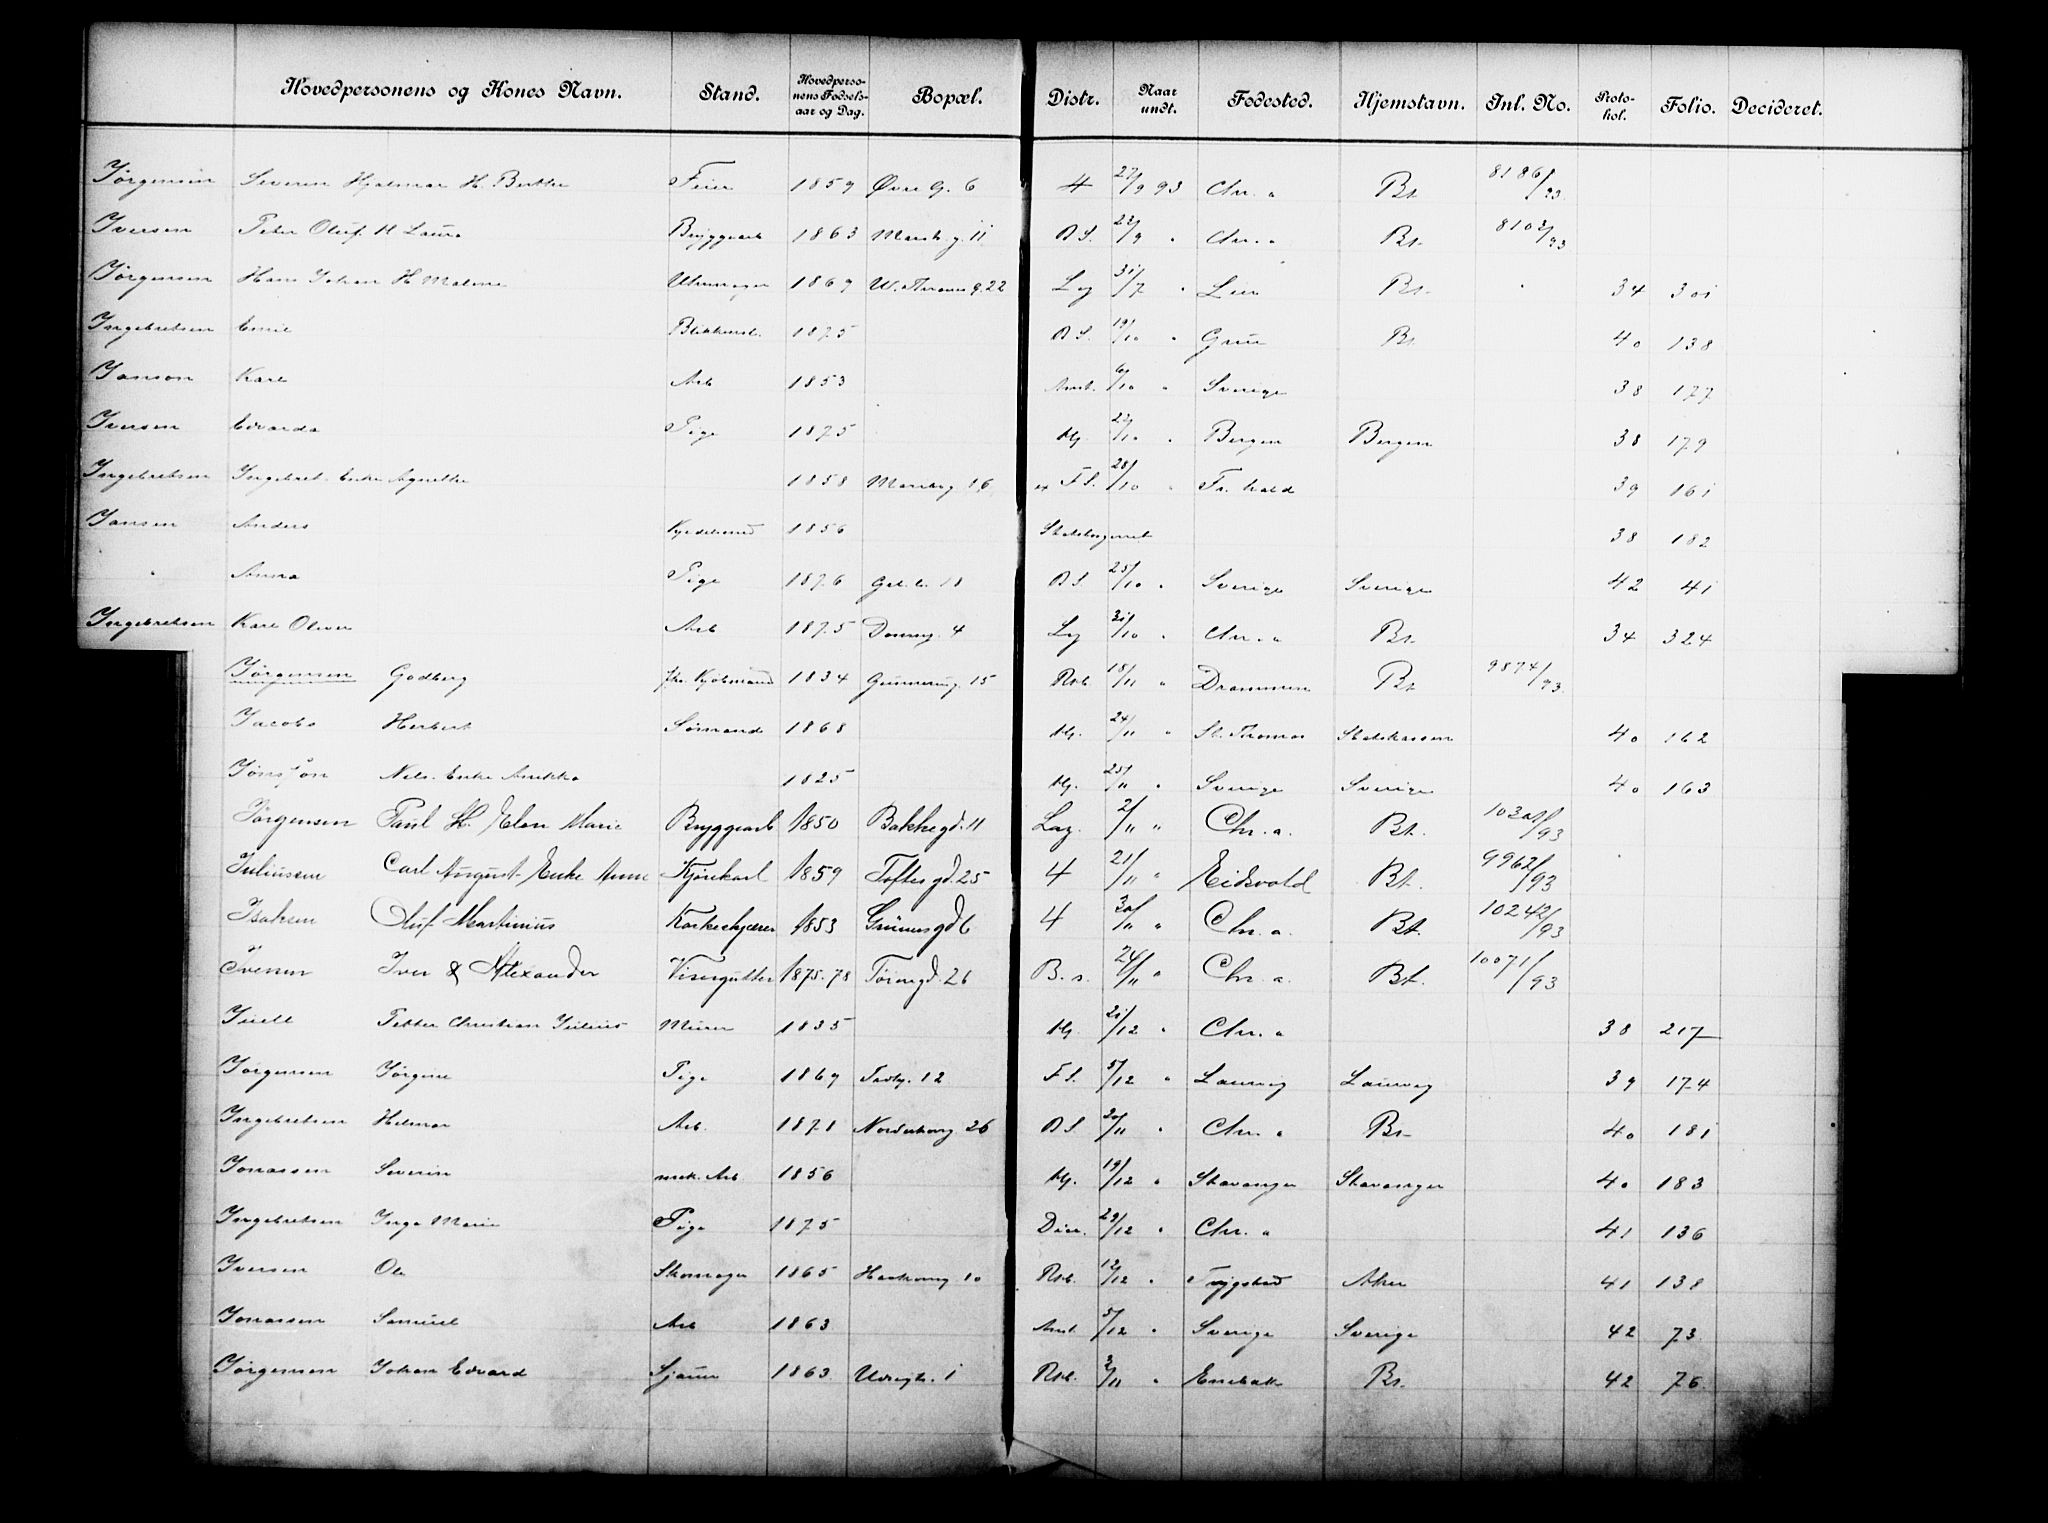 Hovedpersonens og Kones Navn. Stand. Hovedpersonens Fødselsaar og Dag. Bopæl. Distr. Naar undt. Fødested. Hjemstavn. Inl. No. Protokol. Folio. Decideret.
Jørgensen Severin Hjalmar H. Berthe Feier 1859 Øvre G. 6 4 27/9 93 Chr. a Bt. 8186/93
Iversen Peter Oluf H Laura Bryggearb 1863 Mark. g. 11 B S. 22/9 " Chr. a Bt. 8102/93
Jørgensen Hans Johan H Malene Uhrmager 1869 W. Thranes g. 22 Lg 31/7 " Lier Bt. 34 301
Ingebretsen Emil Blikkensl. 1875 B S. 19/10 " Grue Bt. 40 138
Janson Karl Arb 1853 Amt. 6/10 " Sverige 38 177
Iversen Edvarda Pige 1875 Hj 27/10 " Bergen Bergen 38 179
Ingebretsen Ingebret. Enke Agnethe 1858 Maribg 16 F S. 28/10 " Fr. hald 39 161
Jansen Anders Kjedelsmed 1856 38 182
" Anna Pige 1876 18 B S. 25/10 " Sverige Sverige 42 41
Ingebretsen Karl Oliver Arb 1875 4 Lg 31/10 " Chr. a Bt. 34 324
Jørgensen Godberg fhv. Kjøbmand 1834 Gunnerusg. 15 Rvb. 18/11 " Drammen Bt 9874/93
Jacobs Herbert Sømand 1868 Hj. 24/11 " St. Thomas Statskassen 40 162
Jønsson Nels. Enke Annikka 1825 Hj. 25/11 " Sverige Sverige 40 163
Jørgensen Paul H. Elen Marie Bryggearb 1850 Bakkegd. 11 Lag. 2/11 " Chr. a. Bt. 10301/93
Juliussen Carl August Enke Anne Kjørekarl 1859 Toftesgd. 25 4 21/11 " Eidsvold Bt. 9962/93
Isaksen Oluf Martinius Korkeskjærer 1853 Grünersgd 6 4 30/11 " Chr. a. Bt. 10242/93
Iversen Iver & Alexander Visergutter 1875-78 26 B. s. 24/11 " Chr. a. Bt. 10071/93
Juell Petter Christian Julius Murer 1835 Hj. 21/12 " Chr. a 38 217
Jørgensen Jørgine Pige 1869 12 F S. 5/12 " Laurvig Laurvig 39 174
Ingebretsen Helmer Arb. 1871 Norderhovg. 26 B S. 20/11 " Chr. a Bt. 40 181
Jonassen Severin mek. Arb. 1856 Hj. 19/12 " Stavanger Stavanger 40 183
Ingebretsen Inga Marie Pige 1875 29/12 " Chr. a 41 136
Iversen Ole Skomager 1865 10 Rvb. 12/12 " Trygstad Aker 41 138
Jonassen Samuel Arb 1863 Amt. 5/12 " Sverige Sverige 42 73
Jørgensen Johan Edvard Sjauer 1863 1 Rvb. 3/11 " Enebak Bt. 42 76